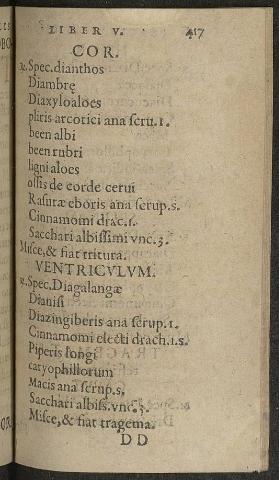 LIBER V. 417
COR.
℞. Spec. dianthos
Diambrę
Diaxyloaloes
pliris arcotici ana scru. 1.
been albi
been rubri
ligni aloes
ossis de corde cerui
Rasuræ eboris ana scrup. s.
Cinnamomi drac. 1.
Sacchari albissimi vnc. 3.
Misce, & fiat tritura.
VENTRICVLVM.
℞. Spec. Diagalangæ
Dianisi
Diazingiberis ana scrup. 1.
Cinnamomi electi drach. 1. s.
Piperis longi
caryophillorum
Macis ana scrup. s.
Sacchari albiss. vnc. 3.
Misce, & fiat tragema.
DD